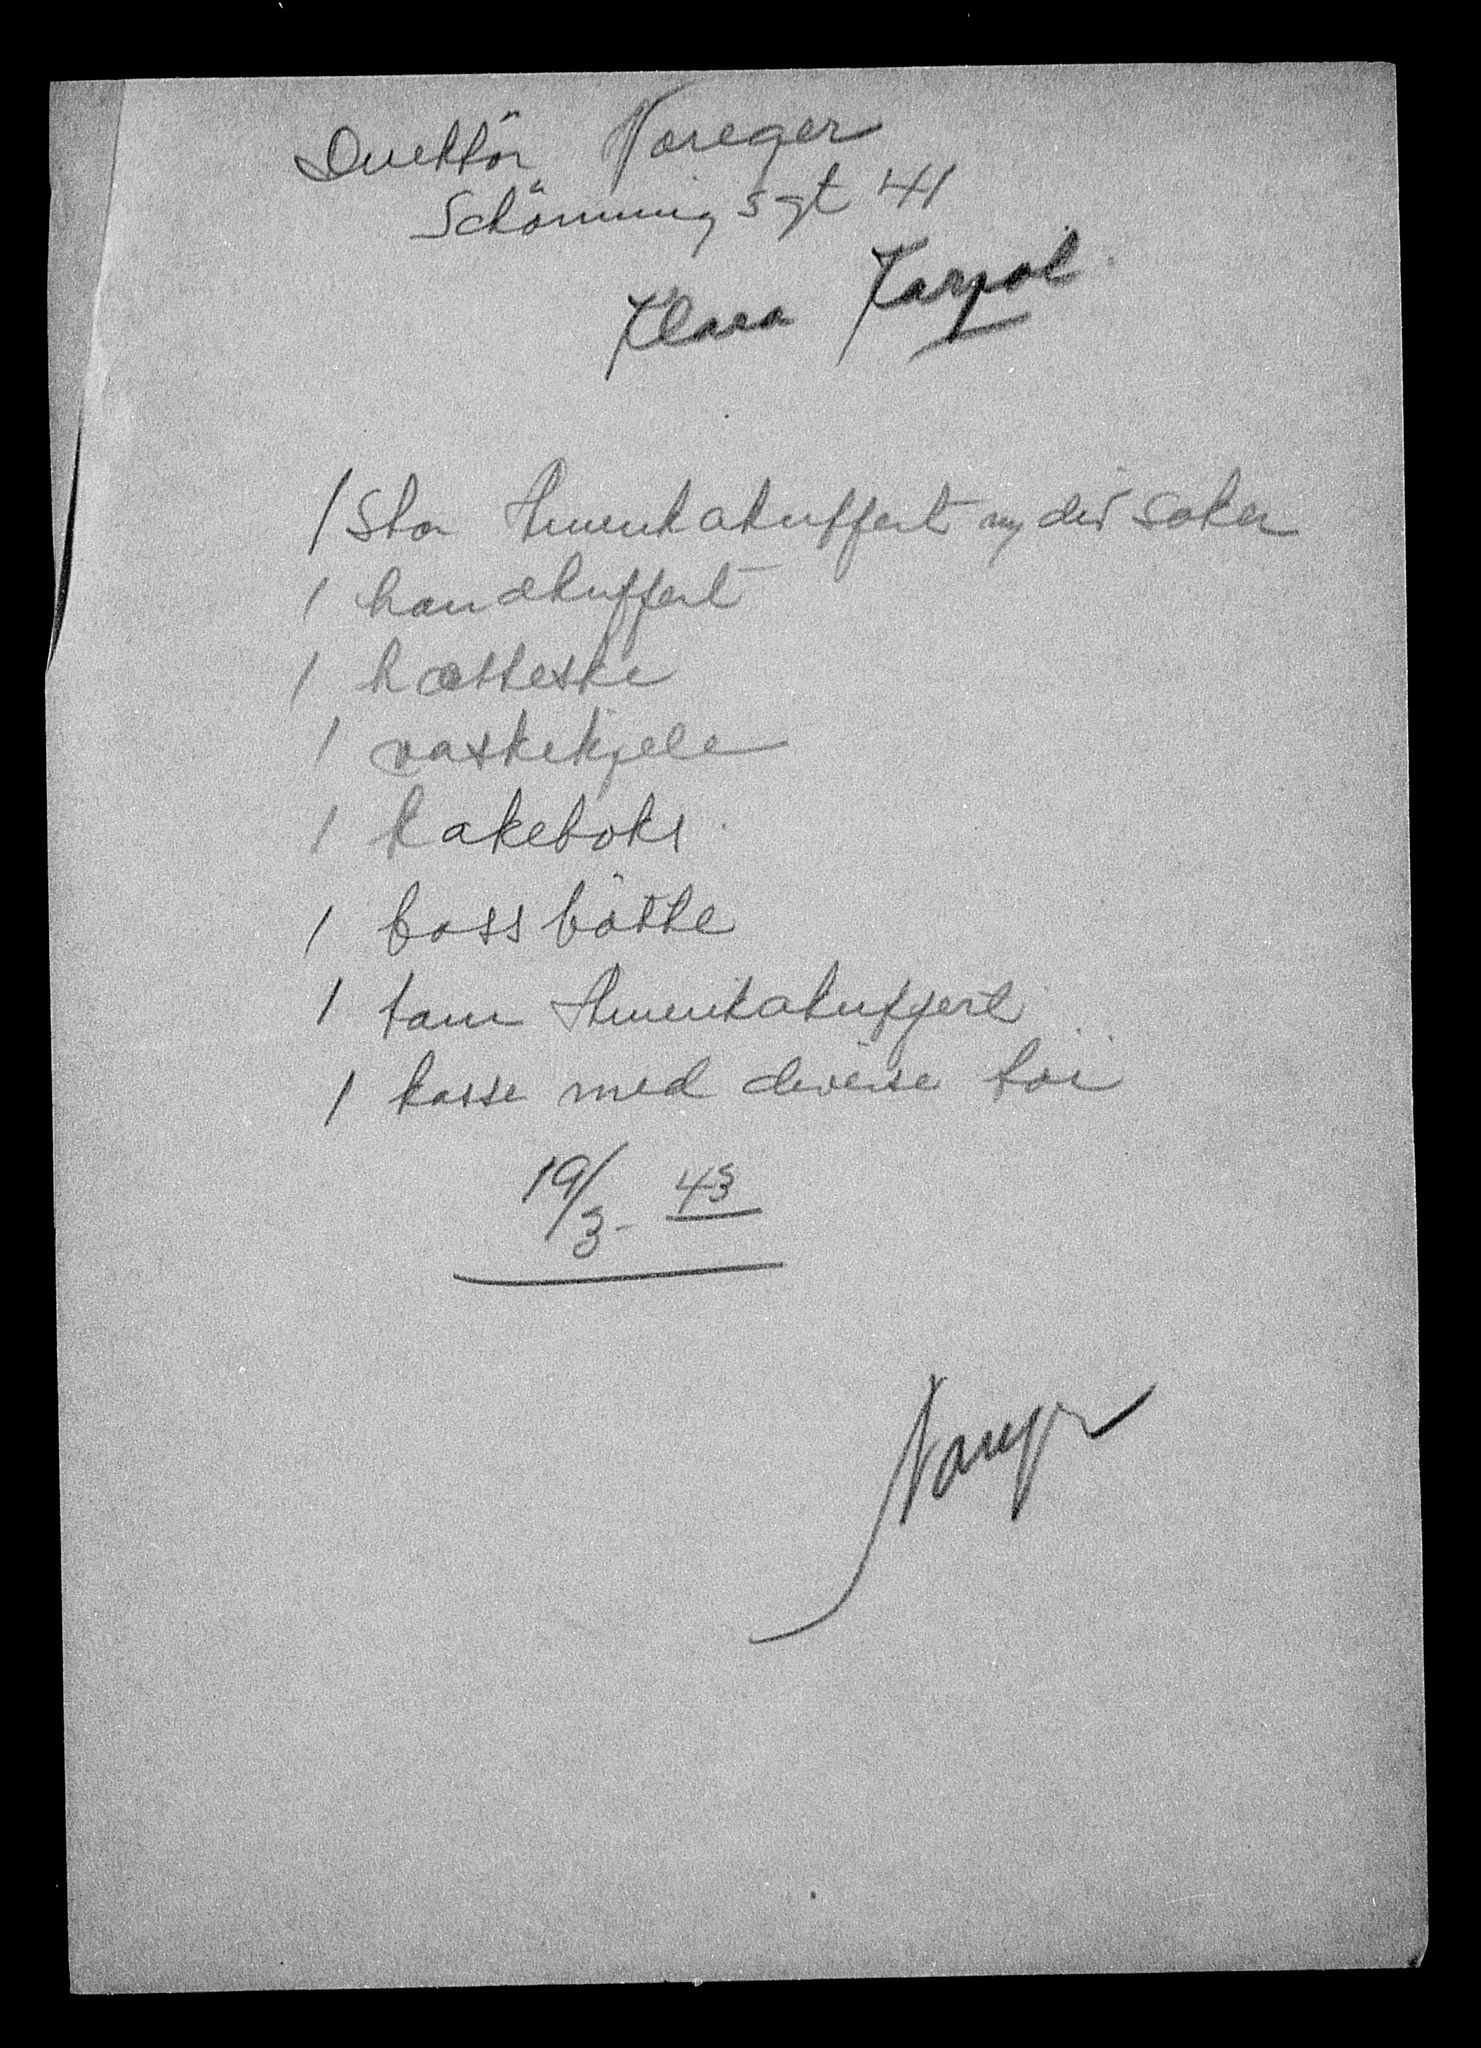 Direktör Noreger
Schönningsgt 41
Klara Karpol.
1 Stor Amerikakuffert m/ div saker
1 handkuffert
1 hatteske
1 vaskekjele
1 kakeboks
1 bossbötte
1 tom Amerikakuffert
1 kasse med diverse töi
19/3- 43
Noreger